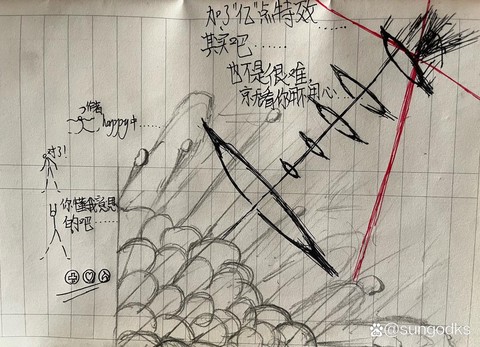 加了"亿"点特效......
其实吧......
也不是很难，
京尤看你用不用心...
作者
happy中......
对了！
你懂我意思
的吧......
@sungodks